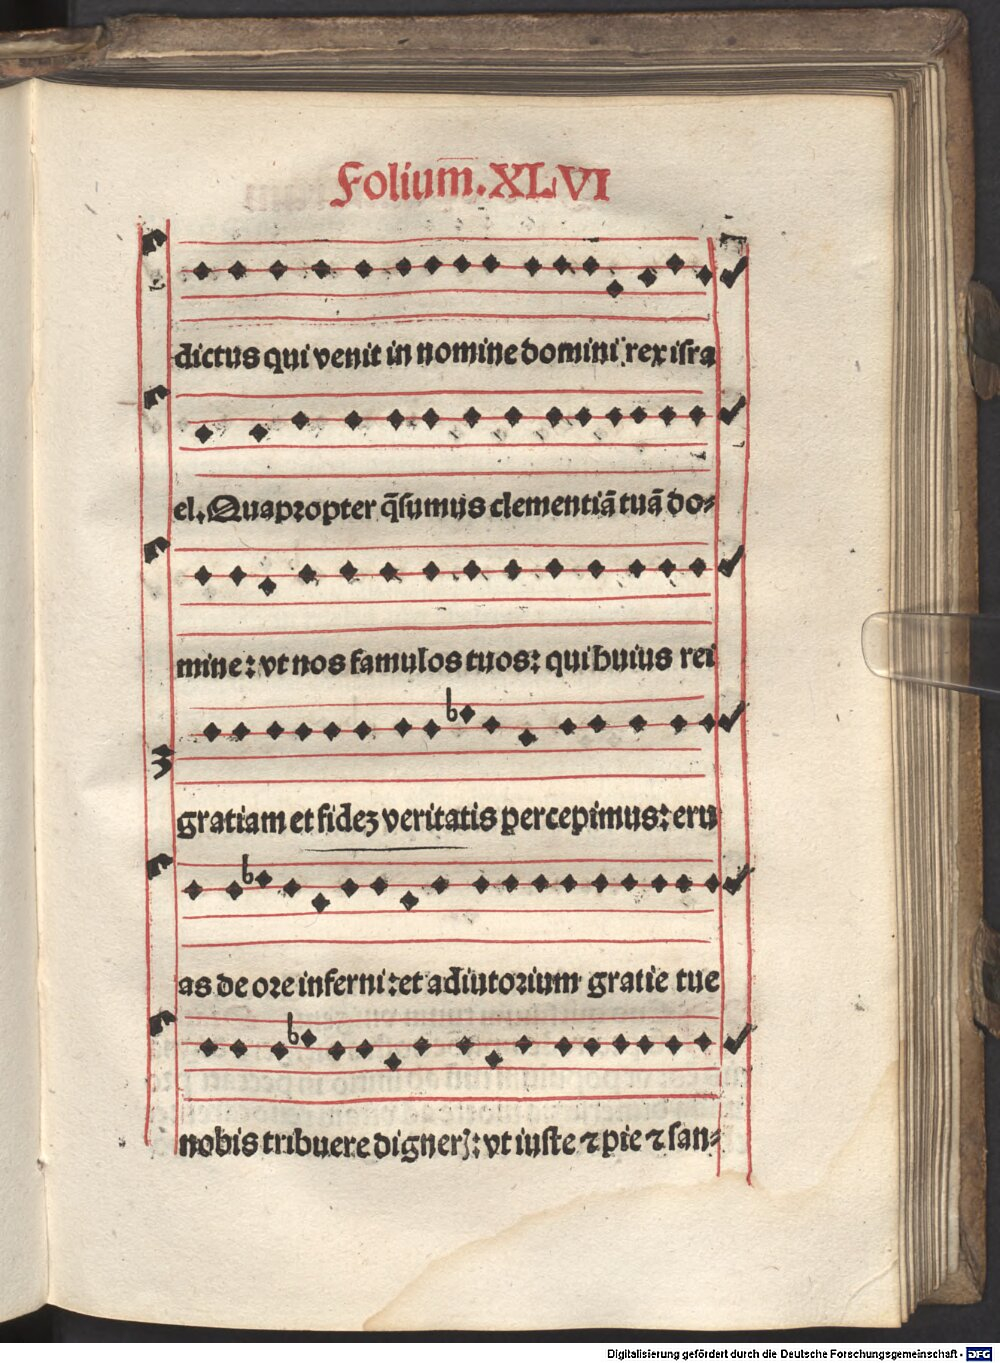 Folium̅.XLVI
dictus qui venit in nomine domini rex isra
el. Quapropter q̃sumus clementiã tuã do⸗
mine: vt nos famulos tuos: qui huius rei
gratiam et fideꝫ veritatis percepimus: eru
as de ore inferni: et adiutorium gratie tue
nobis tribuere digneꝝ: vt iuste ⁊ pie ⁊ san⸗
Digitalisierung gefördert durch die Deutsche Forschungsgemeinschaft - DFG